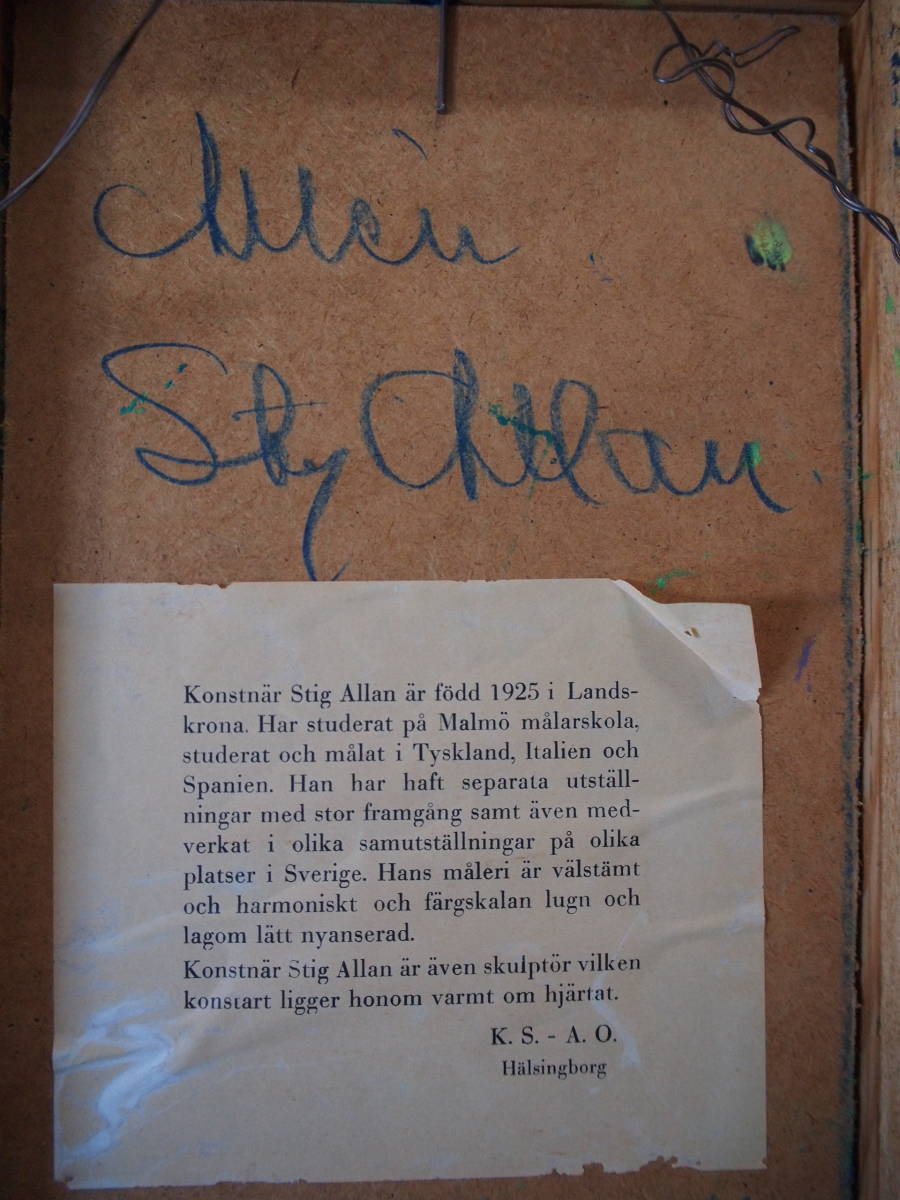 Stig Allan
Konstnär Stig Allan är född 1925 i Lands-
krona. Har studerat på Malmö målarskola,
studerat och målat i Tyskland, Italien och
Spanien. Han har haft separata utställ-
ningar med stor framgång samt även med-
verkat i olika samutställningar på olika
platser i Sverige. Hans måleri är välstämt
och harmoniskt och färgskalan lugn och
lagom lätt nyanserad.
Konstnär Stig Allan är även skulptör vilken
konstart ligger honom varmt om hjärtat.
K. S. - A. O.
Hälsingborg